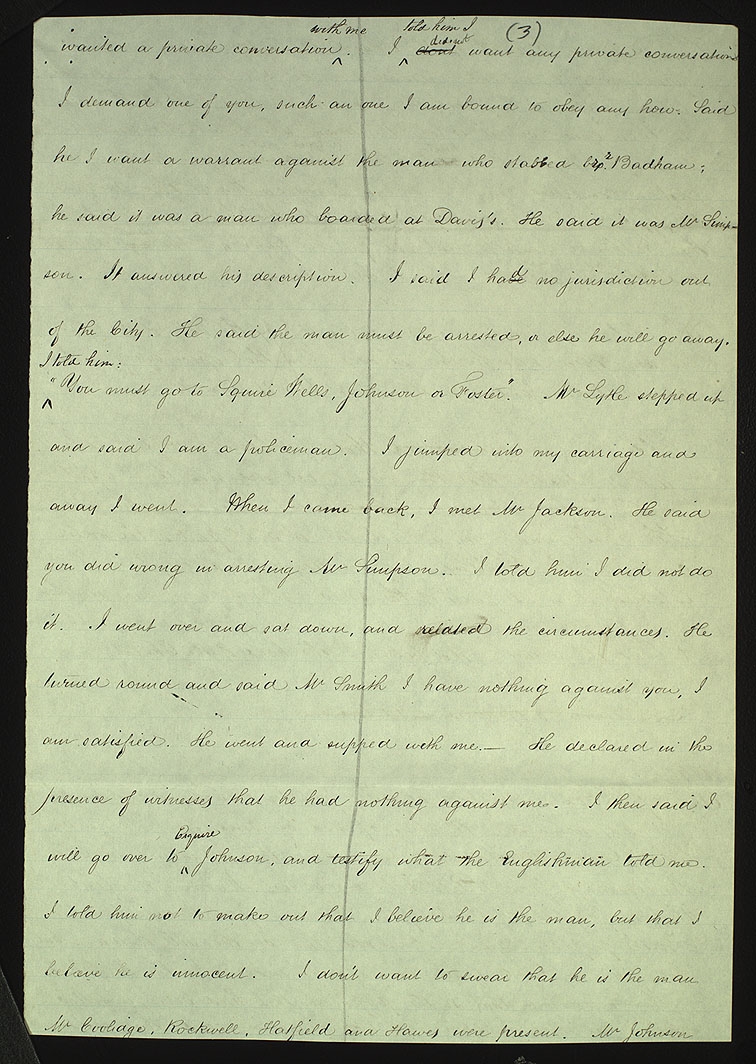 (3)
with me told him I
wanted a private conversation ^. I ^ dont did not want any private conversation
I demand one of you, such an one I am bound to obey any how. Said
he I want a warrant against the man who stabbed Badham;
he said it was a man who boarded at Davis's. He said it was Mr Simp-
son. It answered his description. I said I had no jurisdiction out
of the City. He said the man must be arrested, or else he will go away.
I told him:
^ "You must go to Squire Wells, Johnson or Foster". Mr Lytle stepped up
and said I am a policeman. I jumped into my carriage and
away I went. When I came back, I met Mr Jackson. He said
you did wrong in arresting Mr Simpson. I told him I did not do
it. I went over and sat down, and related the circumstances. He
turned round and said Mr Smith I have nothing against you, I
am satisfied. He went and supped with me.— He declared in the
presence of witnesses that he had nothing against me. I then said I
Esquire
will go over to ^ Johnson, and testify what the Englishman told me.
I told him not to make out that I believe he is the man, but that I
believe he is innocent. I don't want to swear that he is the man
Mr Coolidge, Rockwell, Hatfield and Hawes were present. Mr Johnson